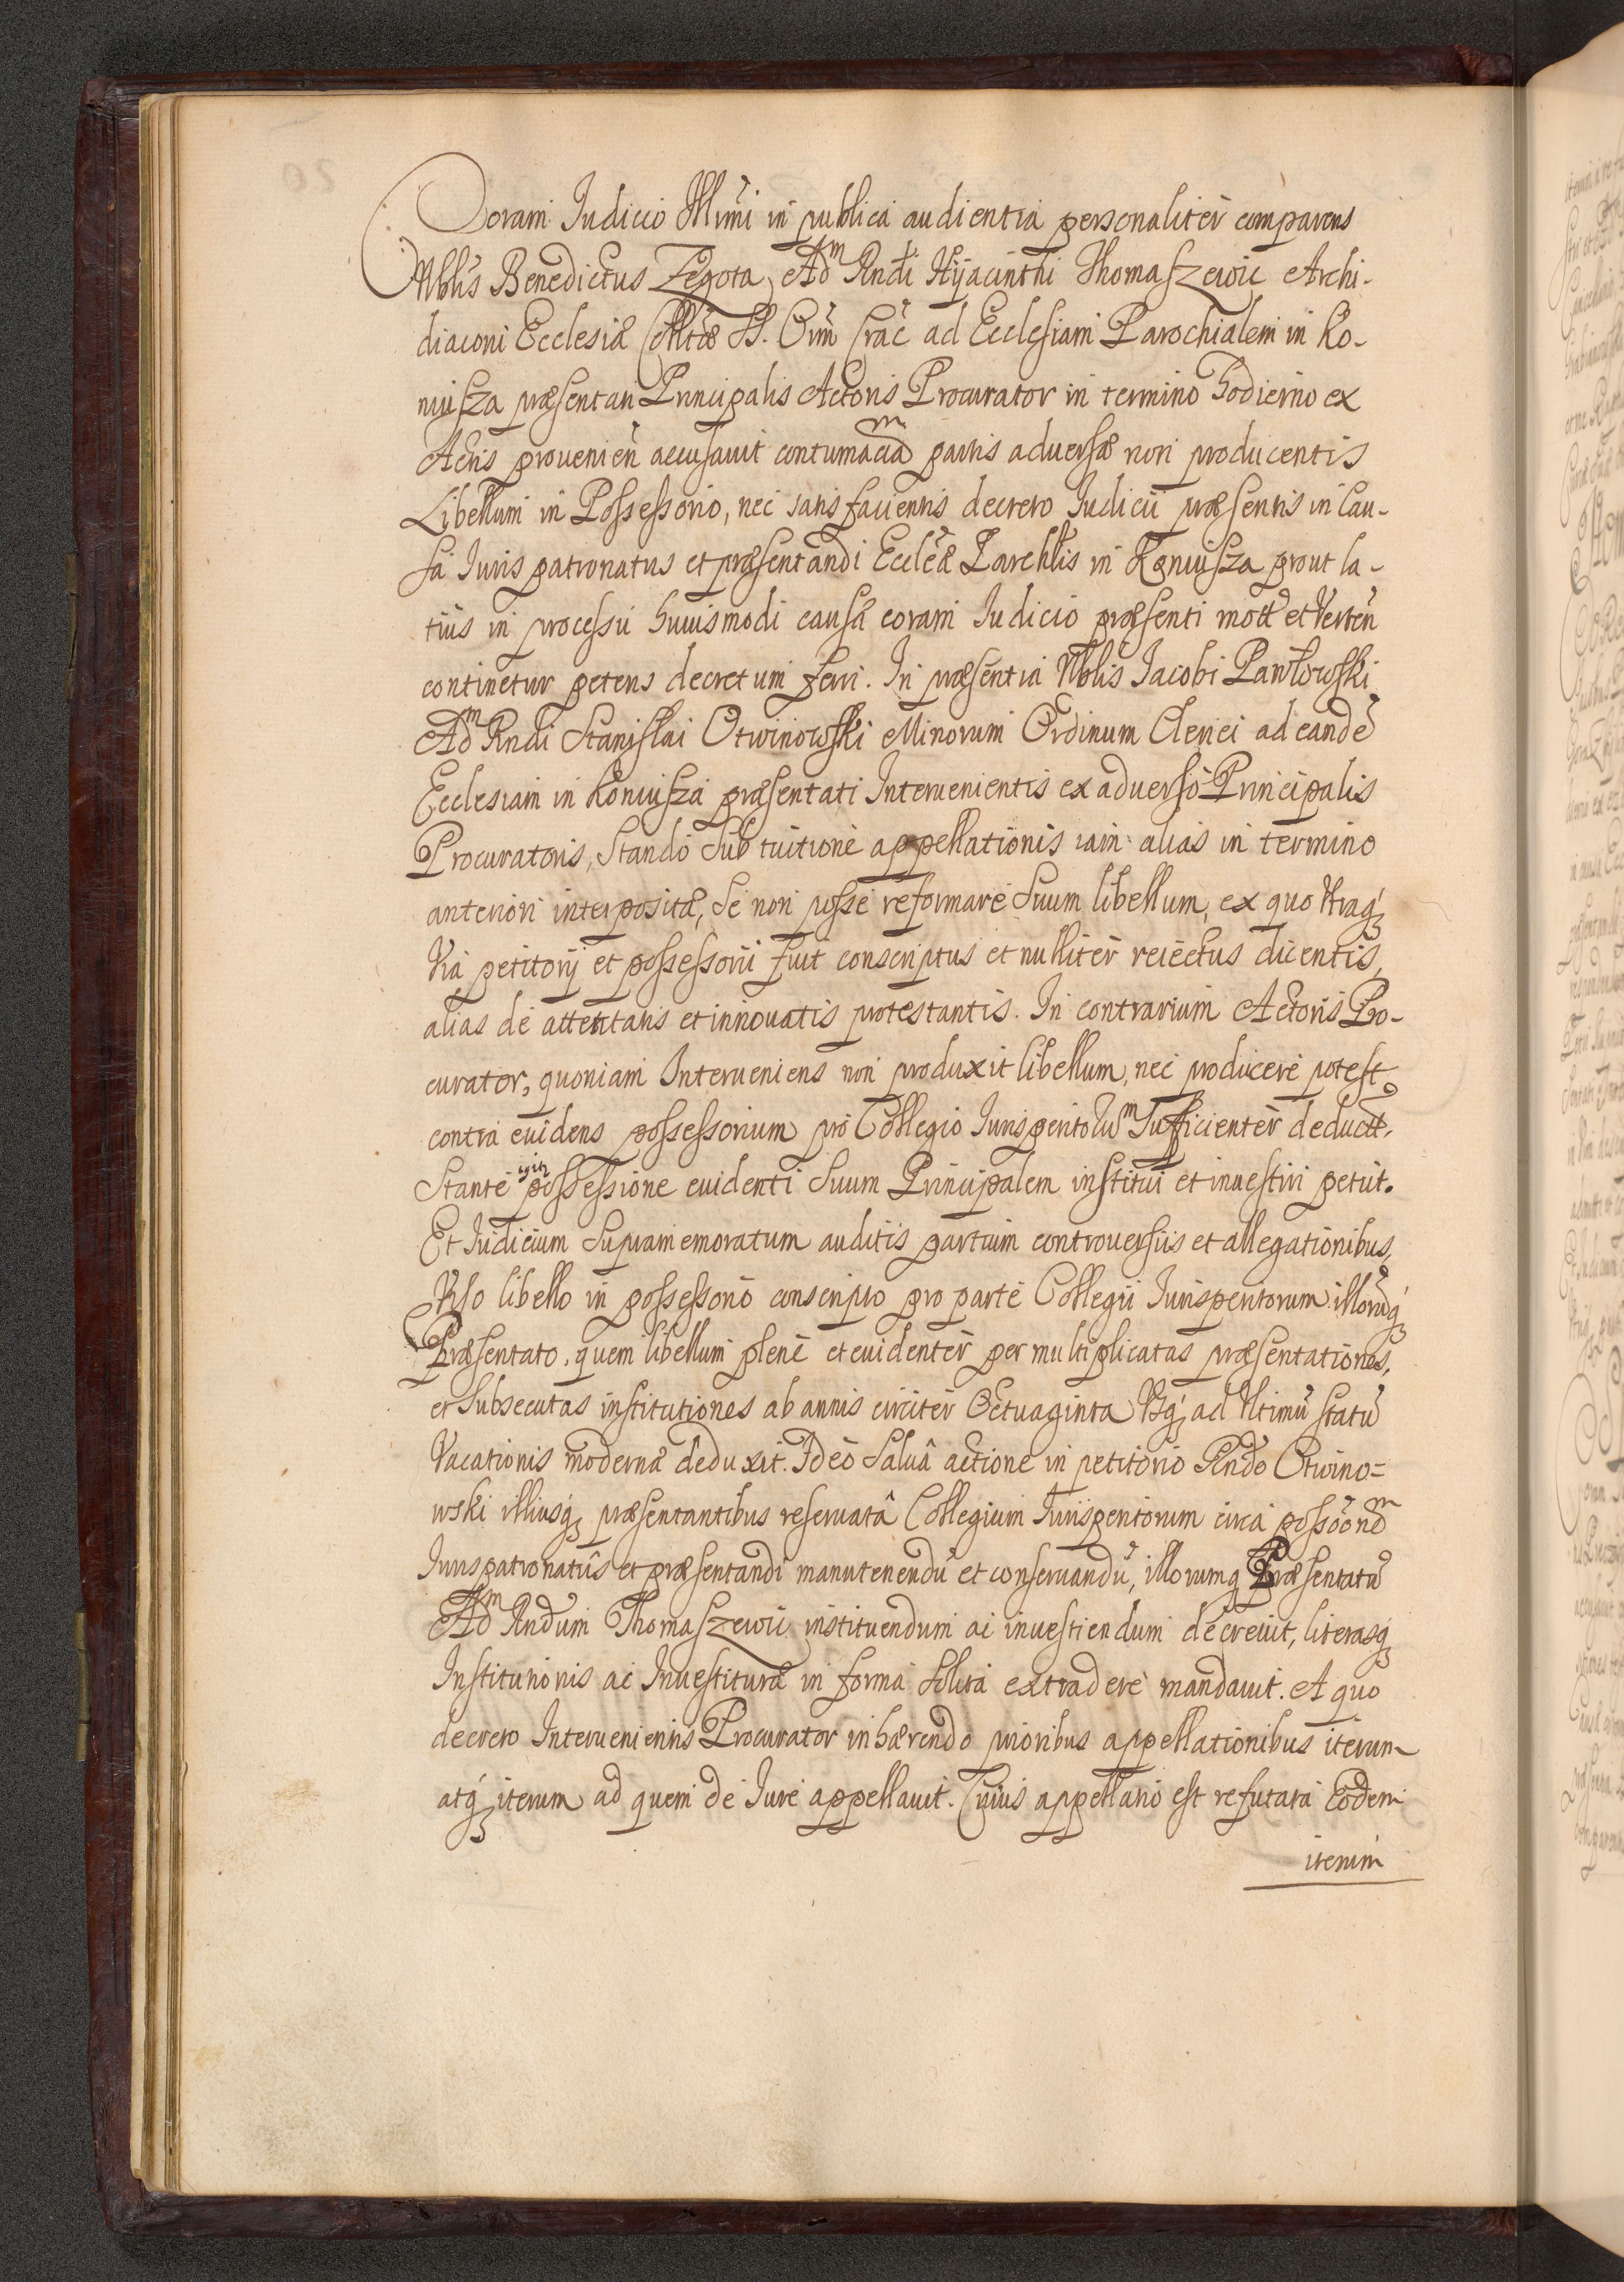 Coram Iudicio Illmi in publica audientia personaliter comparens
Nblis Benedictus Zegota, Adm Rndi Hyacinthi Thomaszewic Archi-
diaconi Ecclesiæ Colltæ SS. Oīm Crac̄ ad Ecclesiam Parochialem in Ko-
niusza præsentati Principalis Actoris Procurator in termino hodierno ex
Actis prouenien̄ accusauit contumaciam partis aduersæ non producentis
Libellum in Possessorio, nec satisfacientis decreto Iudicii præsentis in cau-
sa Iuris patronatus et præsentandi Eccleæ Parchlis in Koniusza prout la-
tius in processu huiusmodi causæ coram Iudicio præsenti motæ et Verten̄
continetur petens decretum ferri. In præsentia Nblis Iacobi Pawłowski
Adm Rndi Stanislai Otwinowski Minorum Ordinum Clerici ad eandē
Ecclesiam in Koniusza præsentati Interuenientis ex aduerso Principalis
Procuratoris, Stando sub tuitione appellationis iam alias in termino
anteriori interpositæ, se non posse reformare suum libellum, ex quo Vtraq;
Via petitorij et possessorii fuit conscriptus et nulliter reiectus dicentis,
alias de attentatis et innouatis protestantis. In contrarium Actoris Pro-
curator, quoniam Interueniens non produxit libellum, nec producere potest
contra euidens possessorium pro Collegio Iurisperitorum sufficienter deduct.
Stante igitr possessione euidenti suum Principalem institui et inuestiri petiit.
Et Iudicium supramemoratum auditis partium controuersiis et allegationibus,
Viso libello in possessorio conscripto pro parte Collegii Iurisperitorum illorumq;
Præsentato, quem libellum plene et euidenter per multiplicatas præsentationes,
et subsecutas institutiones ab annis circiter Octuaginta Vsq; ad Vltimū statū
Vacationis modernæ deduxit. Ideo salua actione in petitorio Rndo Otwino=
wski illiusq; præsentantibus reseruatâ Collegium Iurisperitorum circa possōonem
Iurispatronatûs et præsentandi manutenendū et conseruandū, illorumq Præsentatū
Adm Rndum Thomaszewic instituendum ac inuestiendum decreuit, literasq;
Institutionis ac Inuestituræ in forma solita extradere mandauit. A quo
decreto Interuenientis Procurator inhærendo prioribus appellationibus iterum
atq; iterum ad quem de Iure appellauit. Cuius appellatio est refutata Eodem
iterum